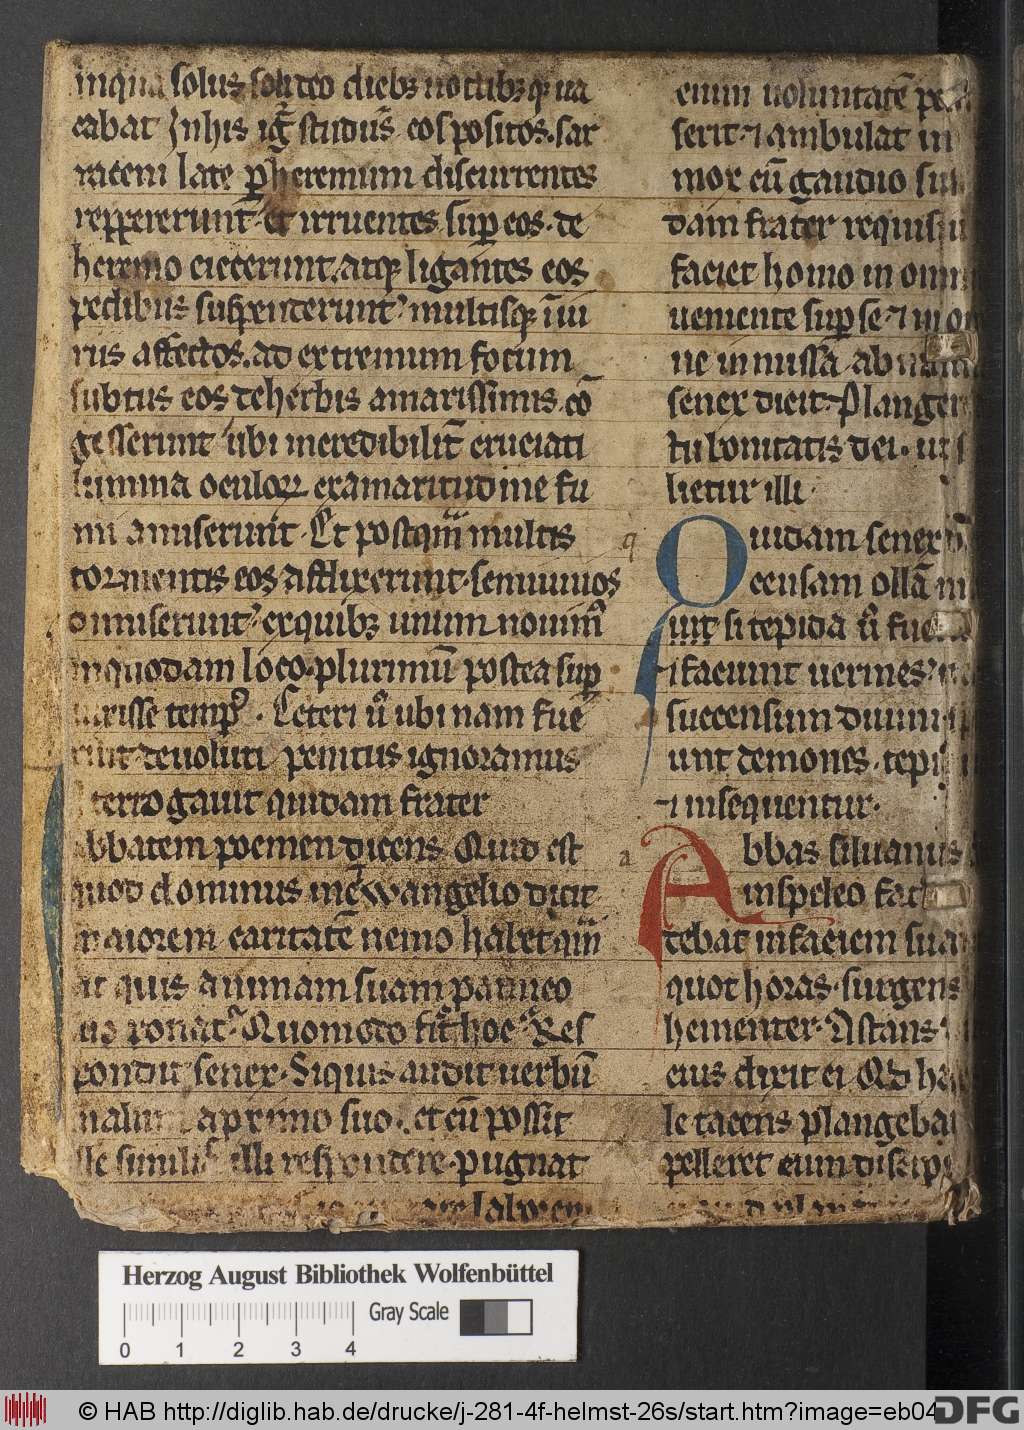 inqua solus soli deo dieb; noctib;q; ua
cabat Jnhis igr̃ studiis eos positos. sar
raceni late ꝑ heremum discurrentes
reppererunt. et irruentes suꝑ eos. de
heremo eiecerunt. atq; ligantes eos
pedibus suspenderunt. multisq; iniu
riis affectos. ad extremum focum
subtus eos deherbis amarissimis. cō
gesserunt ubi incredibilit̃ cruciati
lumina oculoꝝ examaritudine fu
mi amiserunt. Et postqm̃ multis
tormentis eos afflixerunt. semiuiuos
dimiserunt. exquib; unum nouim̃
inquodam loco. plurimū postea suꝑ
uixisse tempꝰ. Ceteri ũ ubi nam fue
rint deuoluti penitus ignoramus
terrogauit quidam frater
abbatem poemen dicens Quid est
quod dominus inewangelio dicit
maiorem caritatē nemo habet qm̃
ut quis animam suam pro amico
suo ponat. Quomodo fit hoc. Res
pondit senex. Siquis audit uerbū
malum aproximo suo. et cū possit
ille similis illi respondere. pugnat
laborem
eium uoluntatē
serit. ⁊ ambulat in
mor cū gaudio
dam frater
faciet homo in omni
ueniente suꝑ se. ⁊ in
ne inmissa ab
senex dicit. Plangere
tu bonitatis dei. ut
lietur illi.
q
Quidam senex
ccensam ollā
uit si tepida ũ
⁊ faciunt uermes.
succensum diuini.
unt demones. tepi
⁊ insequentur.
a
Abbas siluanus
inspeleo
debat infaciem suam
quot horas. surgens
hementer. Astans
eius dixit ei Qd
le tacens plangebat
pelleret eum
Herzog August Bibliothek Wolfenbüttel
Gray Scale
0 1 2 3 4
© HAB http://diglib.hab.de/drucke/j-281-4f-helmst-26s/start.htm?image=eb04
DFG